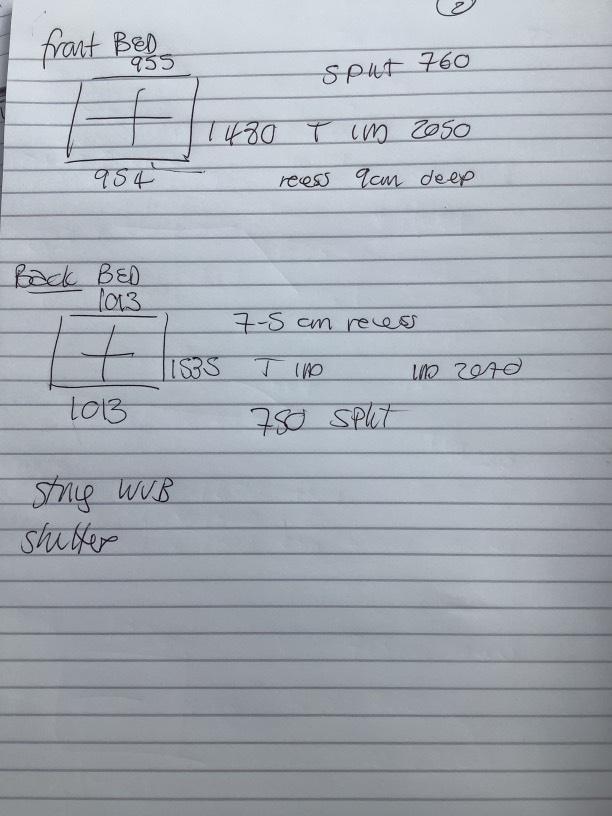 2
front BED
955
split 760
1480 T 110 2050
954
recess 9cm deep
Back BED
1013
7-5 cm recess
1535 T 110
1013
750 split
shutters